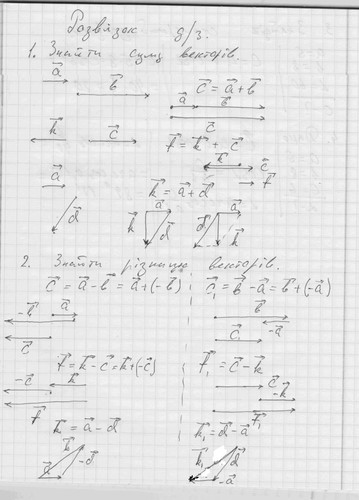 Розвязок д/з.
1. Знайти суму векторів.
a⃗
b⃗
c⃗ = a⃗ + b⃗
a⃗ b⃗
c⃗
k⃗ c⃗
f⃗ = k⃗ + c⃗
k⃗ c⃗
f⃗
a⃗
k⃗ = a⃗ + d⃗
d⃗
a⃗ k⃗ d⃗
a⃗ d⃗ k⃗
2. Знайти різницю векторів.
c⃗ = a⃗ - b⃗ = a⃗ + (-b⃗)
-b⃗ a⃗
c⃗
f⃗ = k⃗ - c⃗ = k⃗ + (-c⃗)
-c⃗ k⃗
f⃗
k⃗ = a⃗ - d⃗
k⃗ -d⃗
c⃗₁ = b⃗ - a⃗ = b⃗ + (-a⃗)
b⃗
-a⃗
c⃗₁
f⃗₁ = c⃗ - k⃗
c⃗
-k⃗
f⃗₁
k⃗₁ = d⃗ - a⃗
k⃗₁ d⃗
-a⃗